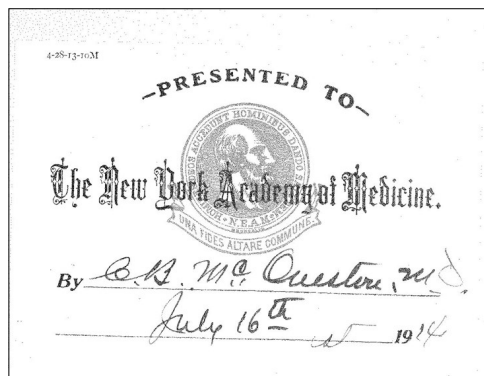 4-28-13-10M
—PRESENTED TO—
The New York Academy of Medicine.
N.E.A.M.
UNA FIDES ALTARE COMMUNE.
By C.B. McQuestion, M.D.
July 16th 1914